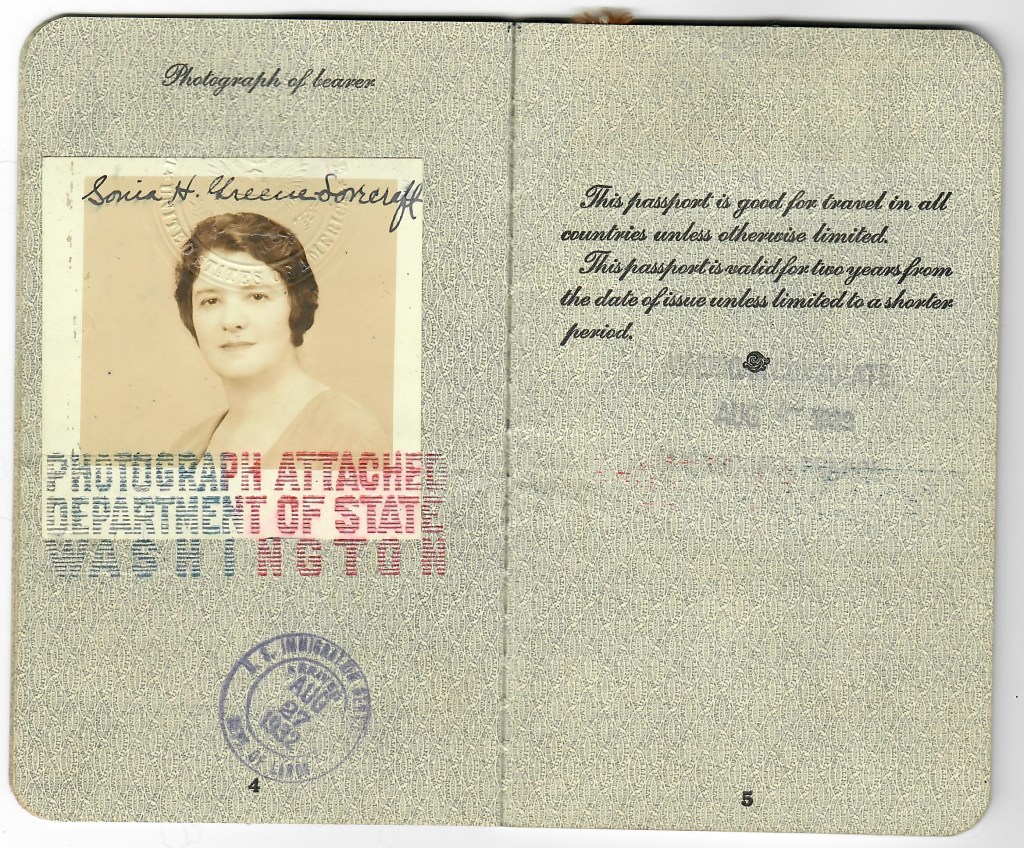 Photograph of bearer
Sonia H. Greene-Lovecraft
UNITED STATES OF AMERICA
PHOTOGRAPH ATTACHED
DEPARTMENT OF STATE
WASHINGTON
U. S. IMMIGRATION
AUG
27
1932
DEPT. OF LABOR
4
This passport is good for travel in all
countries unless otherwise limited.
This passport is valid for two years from
the date of issue unless limited to a shorter
period.
AUG
5